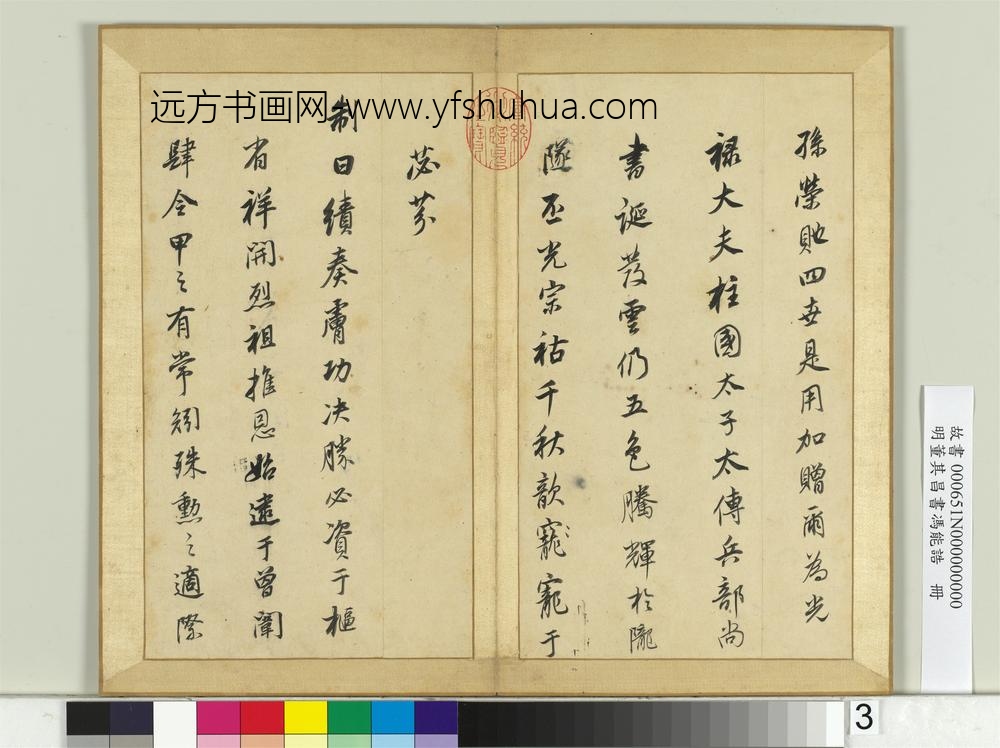 孫榮貤四世是用加贈爾為光
祿大夫柱國太子太傅兵部尚
書誕發雲仍五色騰輝於隴
隧丕光宗祏千秋歆寵寵于
苾芬
制曰績奏膚功決勝必資于樞
省祥開烈祖推恩始遠于曾闈
肆令甲之有常矧殊勲之適際
远方书画网 www.yfshuhua.com
故書 000651N000000000
明董其昌書馮能誥 冊
3